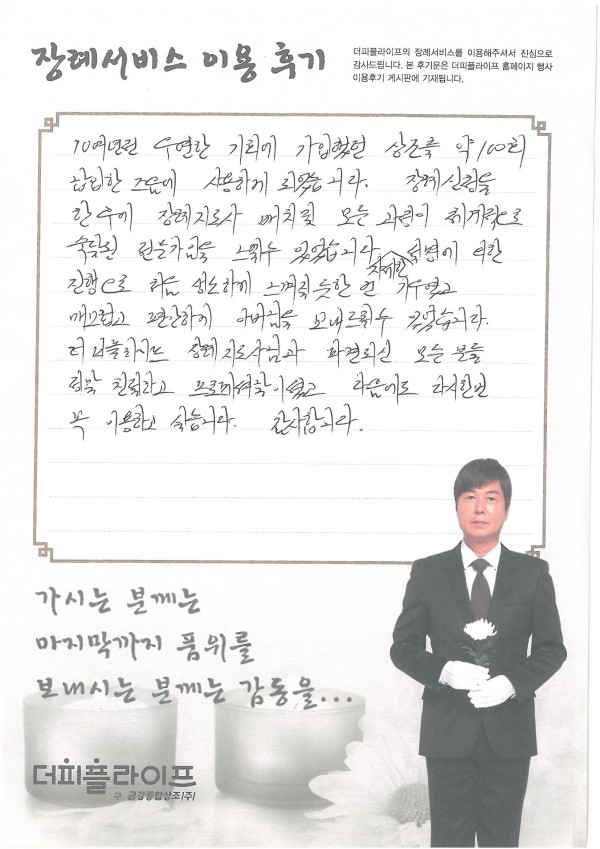 장례서비스 이용 후기
더피플라이프의 장례서비스를 이용해주셔서 진심으로
감사드립니다. 본 후기문은 더피플라이프 홈페이지 행사
이용후기 게시판에 기재됩니다.
10여년전 우연한 기회에 가입했던 상조를 약 100회
납입한 즈음에 사용하게 되었습니다. 장례신청을
한 후에 장례지도사 배치및 모든 과정이 체계적으로
숙달된 느낄수 있었습니다.
진행으로 하슴 생소하게 느껴질 듯한 자세한
매끄럽고 편안하게 아버님을 보내드릴수 있었습니다.
더피플라이프 장례지도사님과 파견되신 모든 분들
정말 친절하고 다음에도 다시한번
꼭 이용하고 싶습니다. 감사합니다.
가시는 분께는
마지막까지 품위를
보내시는 분께는 감동을...
더피플라이프
구. 금강종합상조(주)